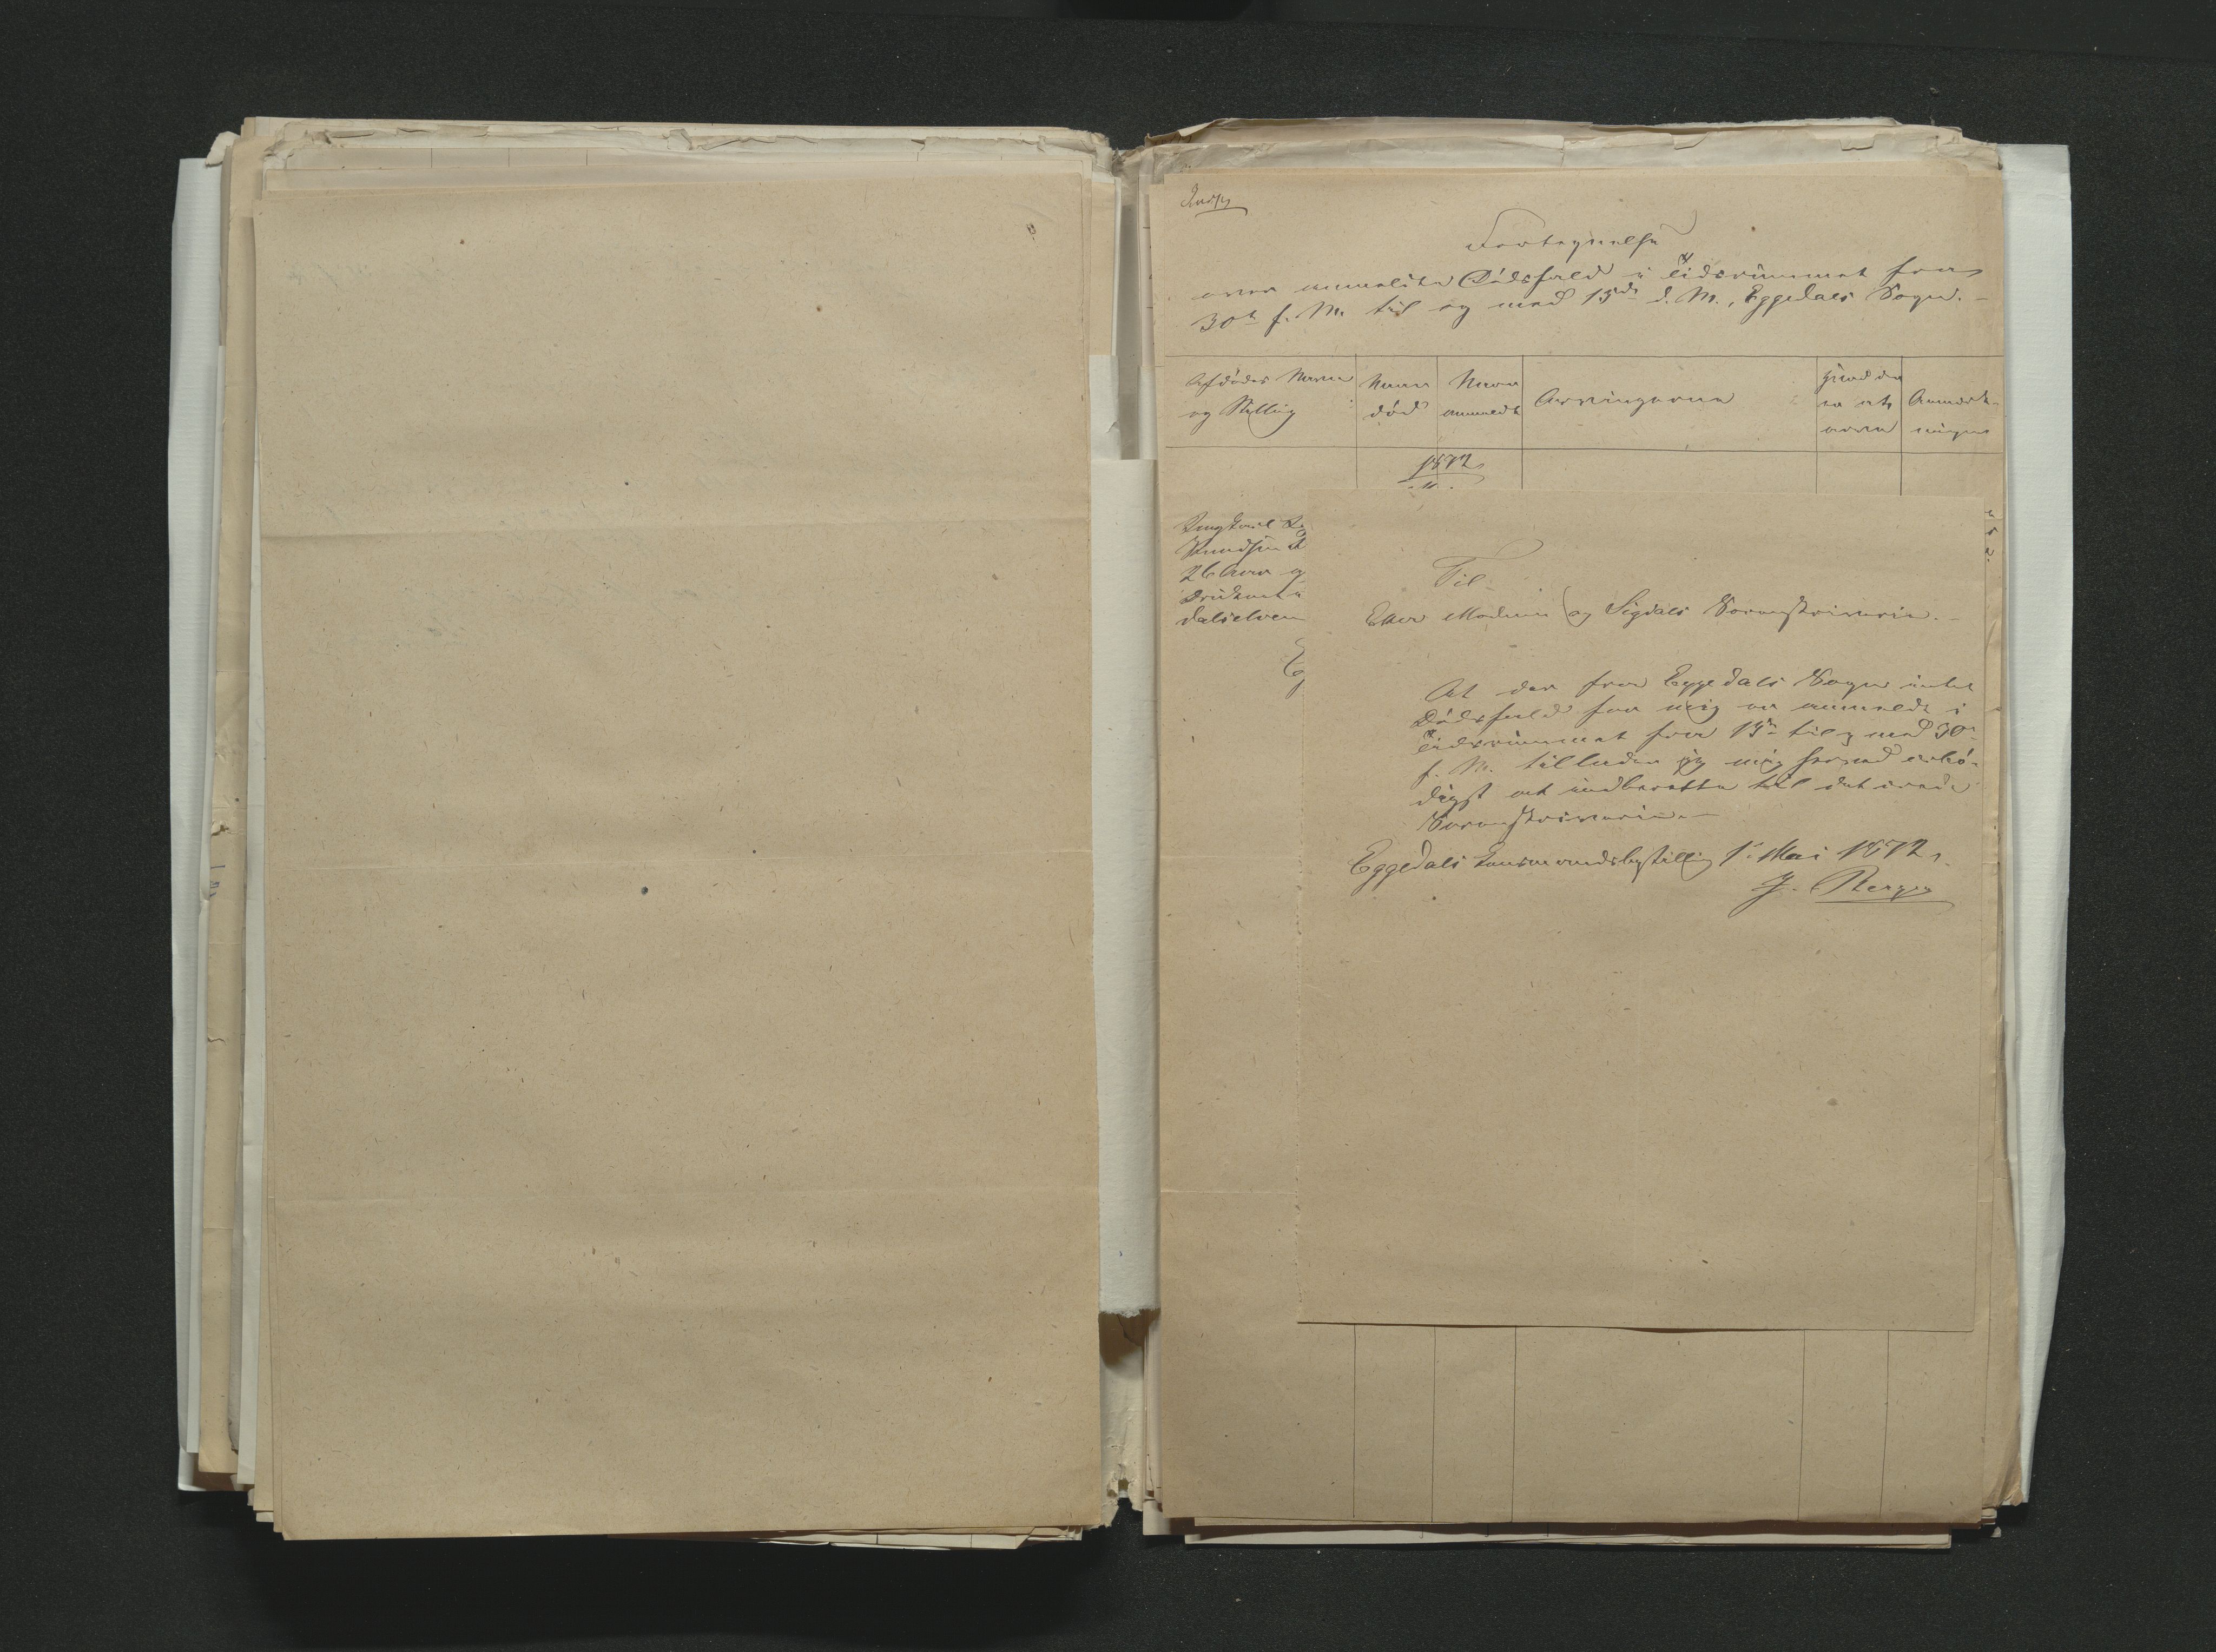 Fortegnelse
over anmeldte Dødsfald i Tidsrummet fra
30te f. M. til og med 15de d. M., Eggedals Sogn.
Afdødes Navn
og Stilling
Naar
død
Naar
anmeldt
Arvingerne
Hvad der
er at
arve
Anmærk-
ninger
1872
Ungkarl
Knudsen
26 Aar og
druknet i
dalselven
Til
Eker Modum og Sigdals Sorenskriveri.
At der fra Eggedals Sogn intet
Dødsfald for mig er anmeldt i
Tidsrummet fra 15de til og med 30te
f. M. tillader jeg mig herved ærbø-
digst at indberette til det ærede
Sorenskriveri.
Eggedals Lensmandsbestilling 1ste Mai 1872.